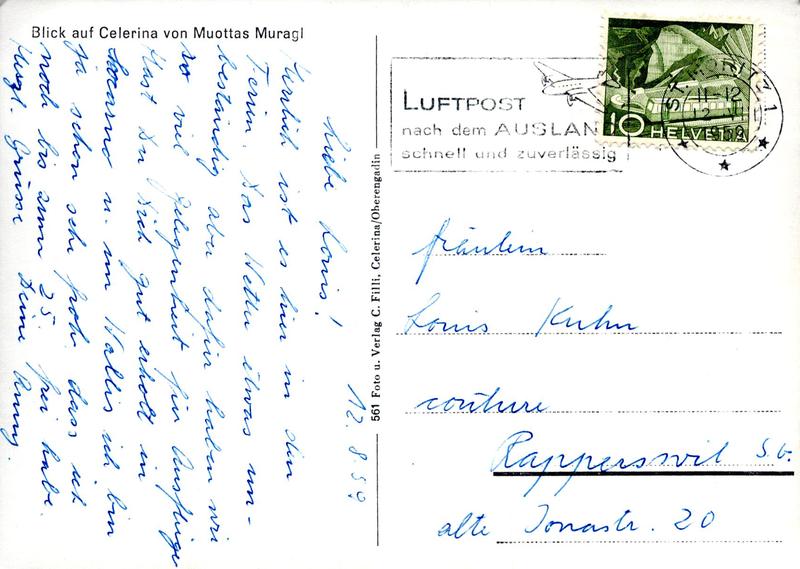 Blick auf Celerina von Muottas Muragl
12.8.59
Liebe Louis!
Herrlich ist es hier in den
Ferien. Das Wetter etwas un-
beständig aber dafür haben wir
so viel Gelegenheit für Ausflüge
Hast Du Dich gut erholt in
Locarno u. im Wallis ich bin
ja schon sehr froh dass ich
noch bis zum 25. frei habe.
Herzl. Grüsse Deine
561 Foto u. Verlag C. Filli, Celerina/Oberengadin
LUFTPOST
nach dem AUSLAN
schnell und zuverlässig
ST. MORITZ 1
11-12
1959
10 HELVETIA
Fräulein
Louis Kuhn
couture
Rapperswil SG.
alte Jonastr. 20